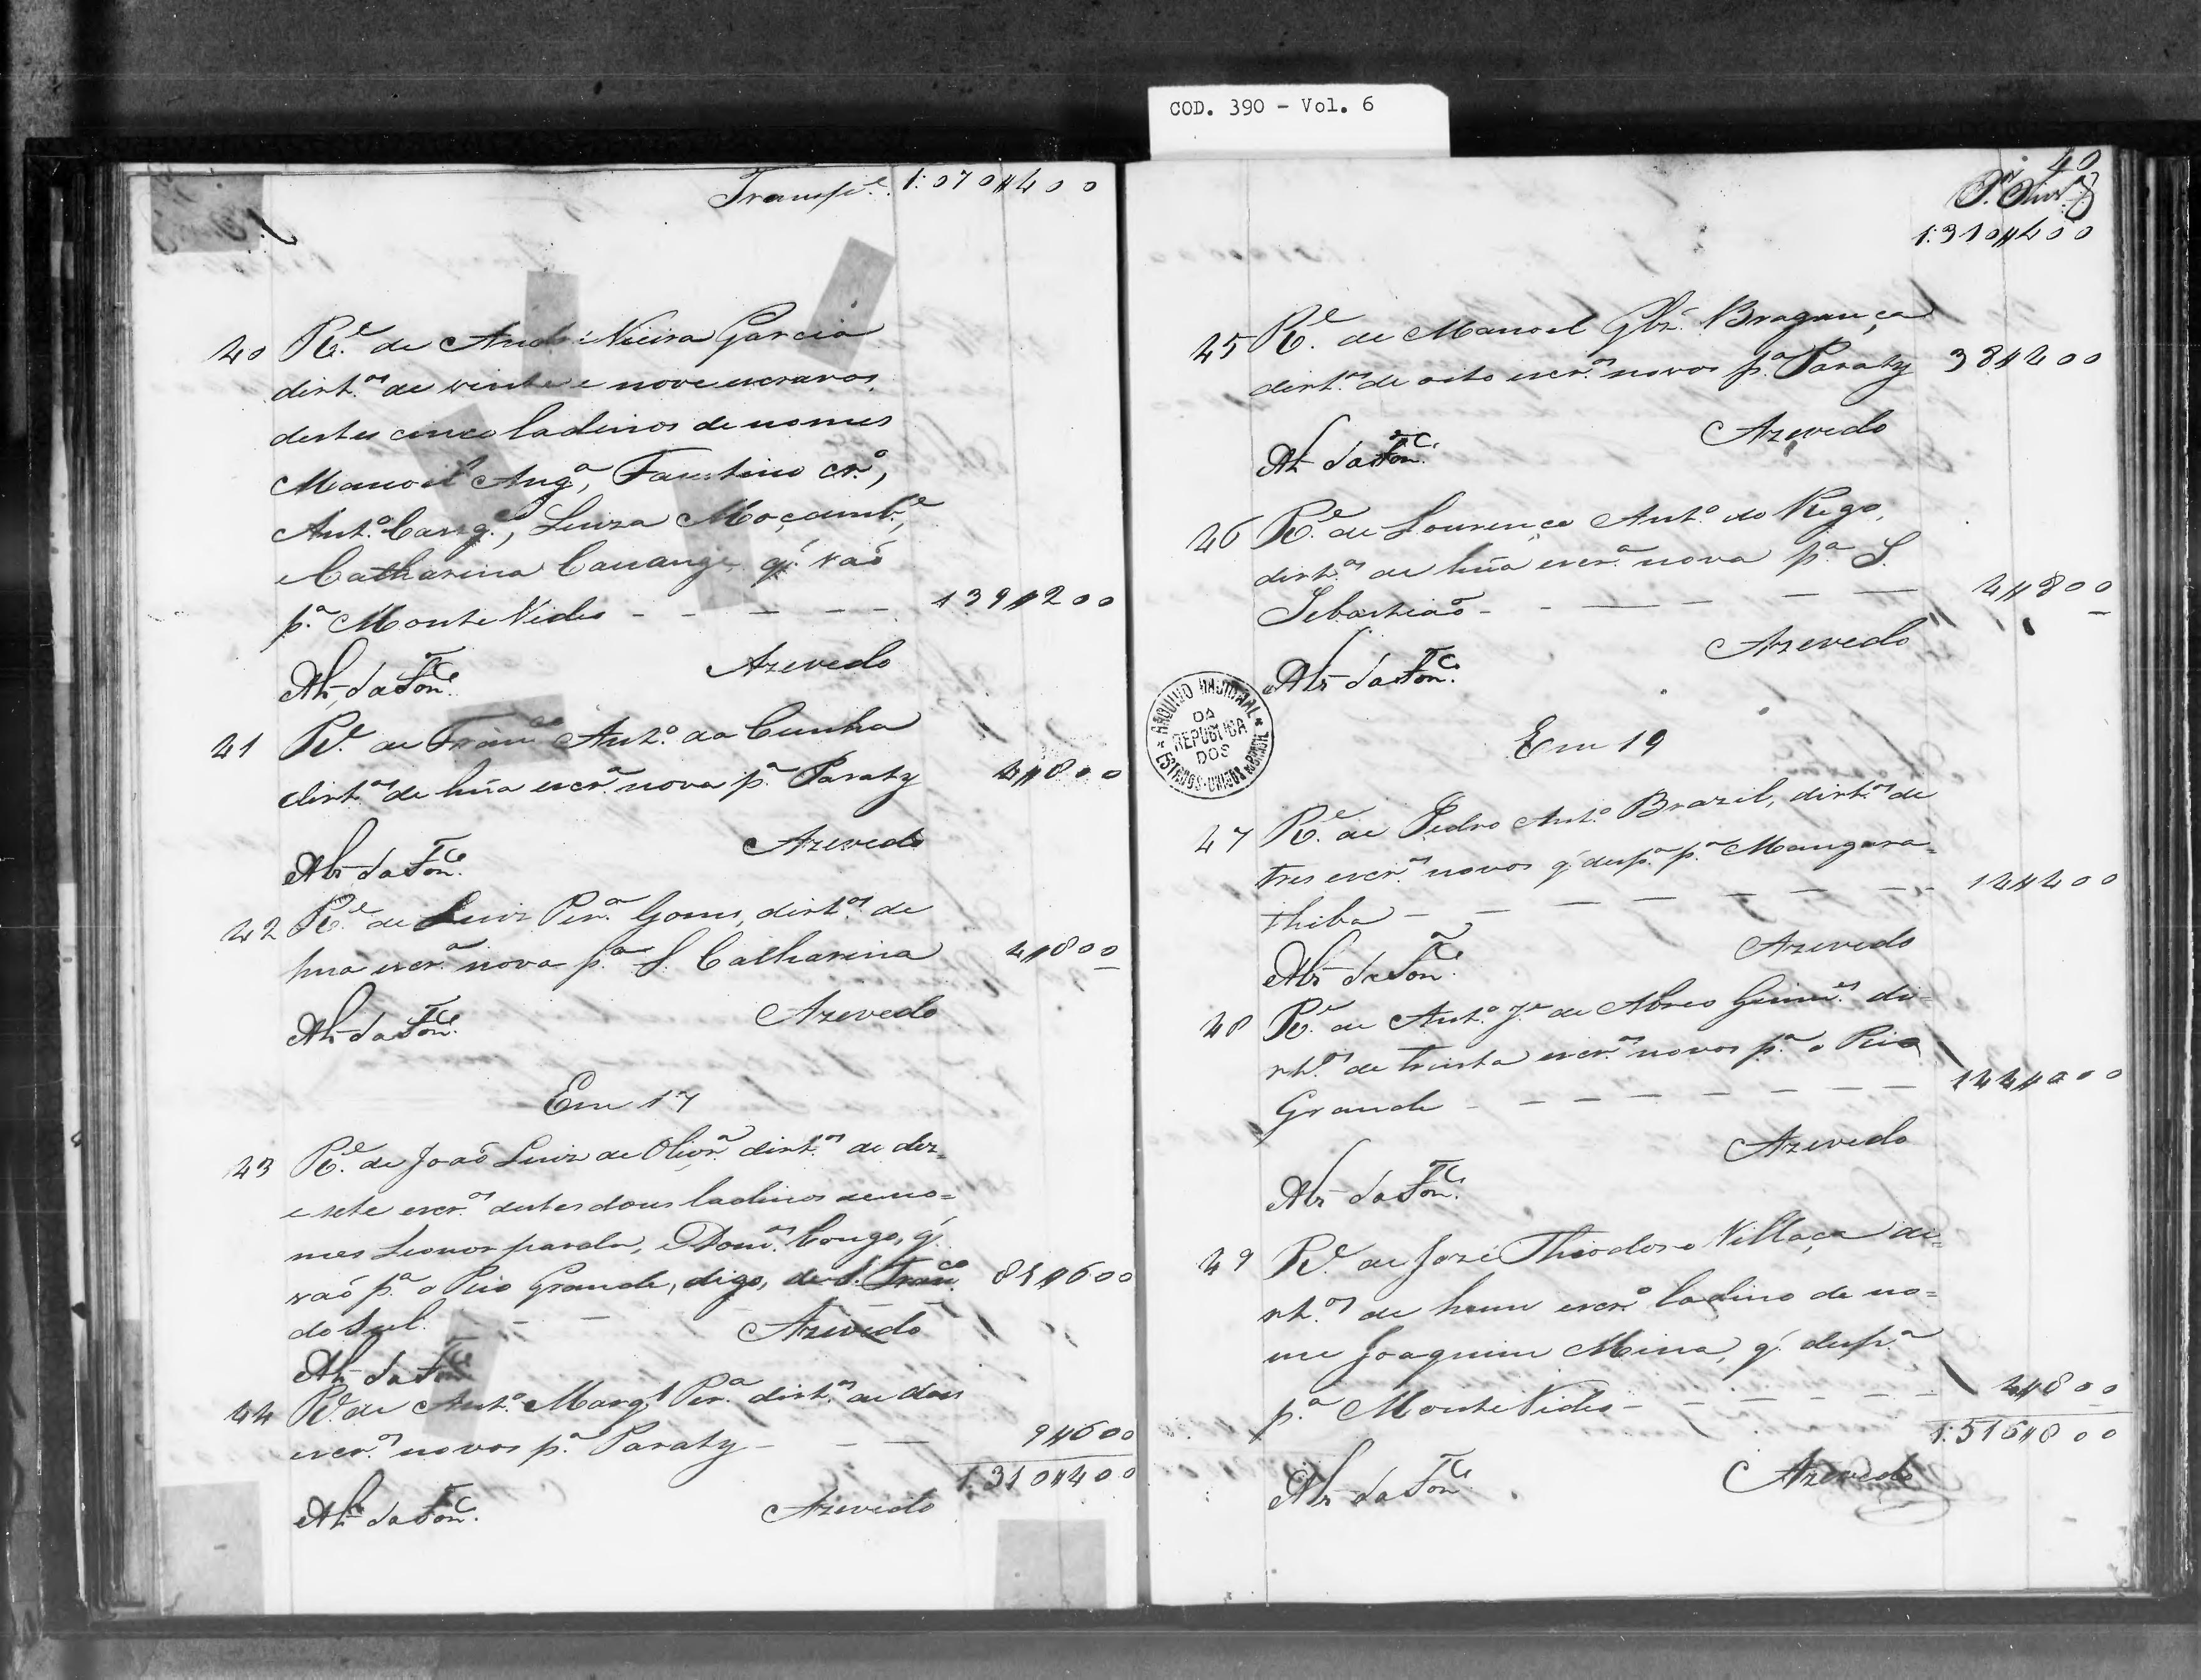 COD. 390 - Vol. 6
Transp.e 1:070$400
40 R.e de André Vieira Garcia
dirt.os de vinte e nove escravos
destes cinco ladinos de nomes
Manoel Ang.a, Faustino cr.o,
Ant.o Cassg.e, Luiza Moçamb.e,
e Catharina Cauange q' vaõ
p.a Monte Video - - - - - 139$200
Az.da Fon.ca Azevedo
41 R.e de Fran.co Ant.o da Cunha
dirt.os de hũa escr.a nova p.a Paraty 4$800
Az.da Fon.ca Azevedo
42 R.e de Luiz Per.a Gomes, dirt.os de
hua escr.a nova p.a S. Catharina 4$800
Az.da Fon.ca Azevedo
Em 17
43 R.e de Joaõ Luiz de Olivr.a dirt.os de dez-
e sete escr.os destes dous ladinos de no=
mes Leonor parda, e Dom.os Congo, q'
vaõ p.a o Rio Grande, digo, de S. Fran.co 81$600
do Sul. - - - Azevedo
Az.da Fon.ca
44 R.e de Ant.o Marq.s Per.a dirt.os de dous
escr.os novos p.a Paraty - - - 9$600
1:310$400
Az.da Fon.ca Azevedo
40
1:310$400
45 R.e de Manoel Glz' Bragança
dirt.os de oito escr.os novos p.a Paraty 38$400
Az.da Fon.ca Azevedo
46 R.e de Lourenço Ant.o do Rego,
dirt.os de hũa escr.a nova p.a S.
Sebastiaõ - - - - - 4$800
Az.da Fon.ca Azevedo
ARQUIVO NACIONAL
DA
REPUBLICA
DOS
ESTADOS-UNIDOS DO BRASIL
Em 19
47 R.e de Pedro Ant.o Brazil, dirt.os de
tres escr.os novos q' desp.a p.a Mangara=
thiba - - - - - - - 14$400
Az.da Fon.ca Azevedo
48 R.e de Ant.o J.e de Abreo Guim.es di-
rt.os de trinta escr.os novos p.a o Rio
Grande - - - - - - - 144$000
Azevedo
Az.da Fon.ca
49 R.e de José Theodoro Villaça di=
rt.os de hum escr.o ladino de no=
me Joaquim Mina, q' desp.a
p.a Monte Video - - - - - 4$800
1:516$800
Az.da Fon.ca Azevedo